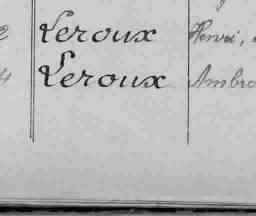 Leroux Hervé,
Leroux Ambro